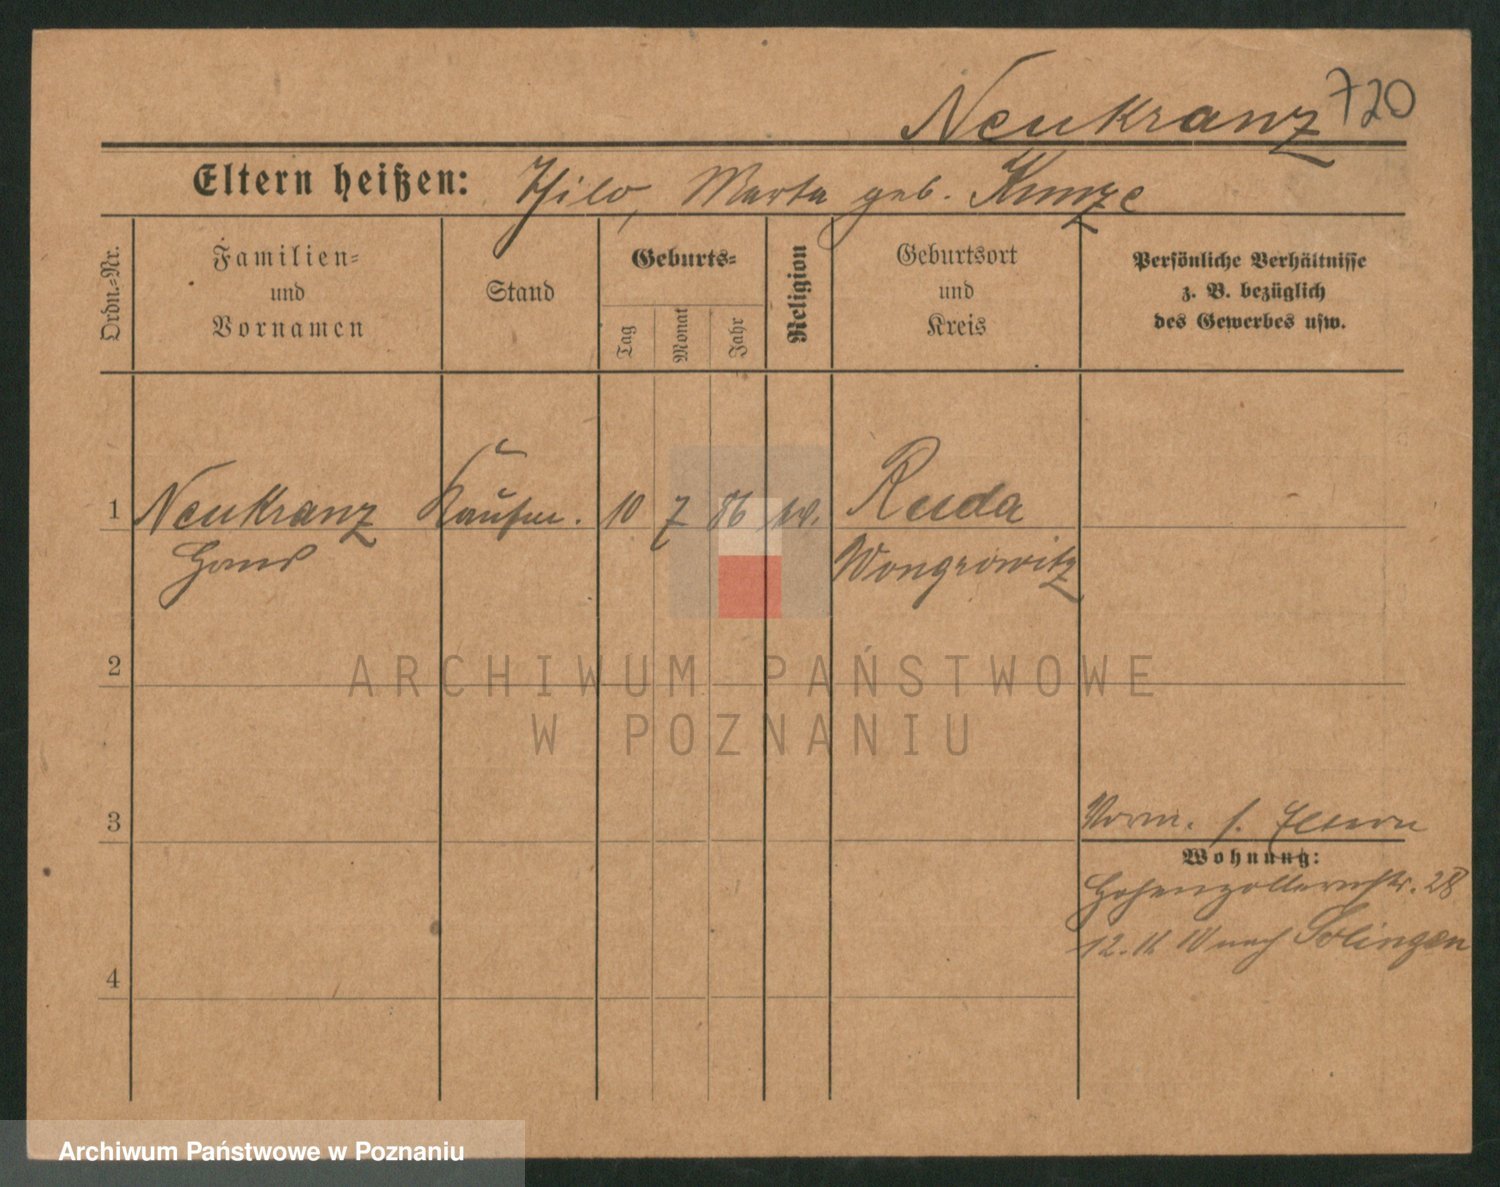 Neukranz 720
Eltern heißen: Thilo, Marta geb. Kunze
Ordn.-Nr.
Familien-
und
Vornamen
Stand
Geburts-
Tag
Monat
Jahr
Religion
Geburtsort
und
Kreis
Persönliche Verhältnisse
z. B. bezüglich
des Gewerbes usw.
1 Neukranz Kaufm. 10 7 86 ev. Ruda
Hans Wongrowitz
2
3
Vorm. s. Eltern
Wohnung:
Hohenzollernstr. 28
12. nach Solingen
4
ARCHIWUM PAŃSTWOWE
W POZNANIU
Archiwum Państwowe w Poznaniu